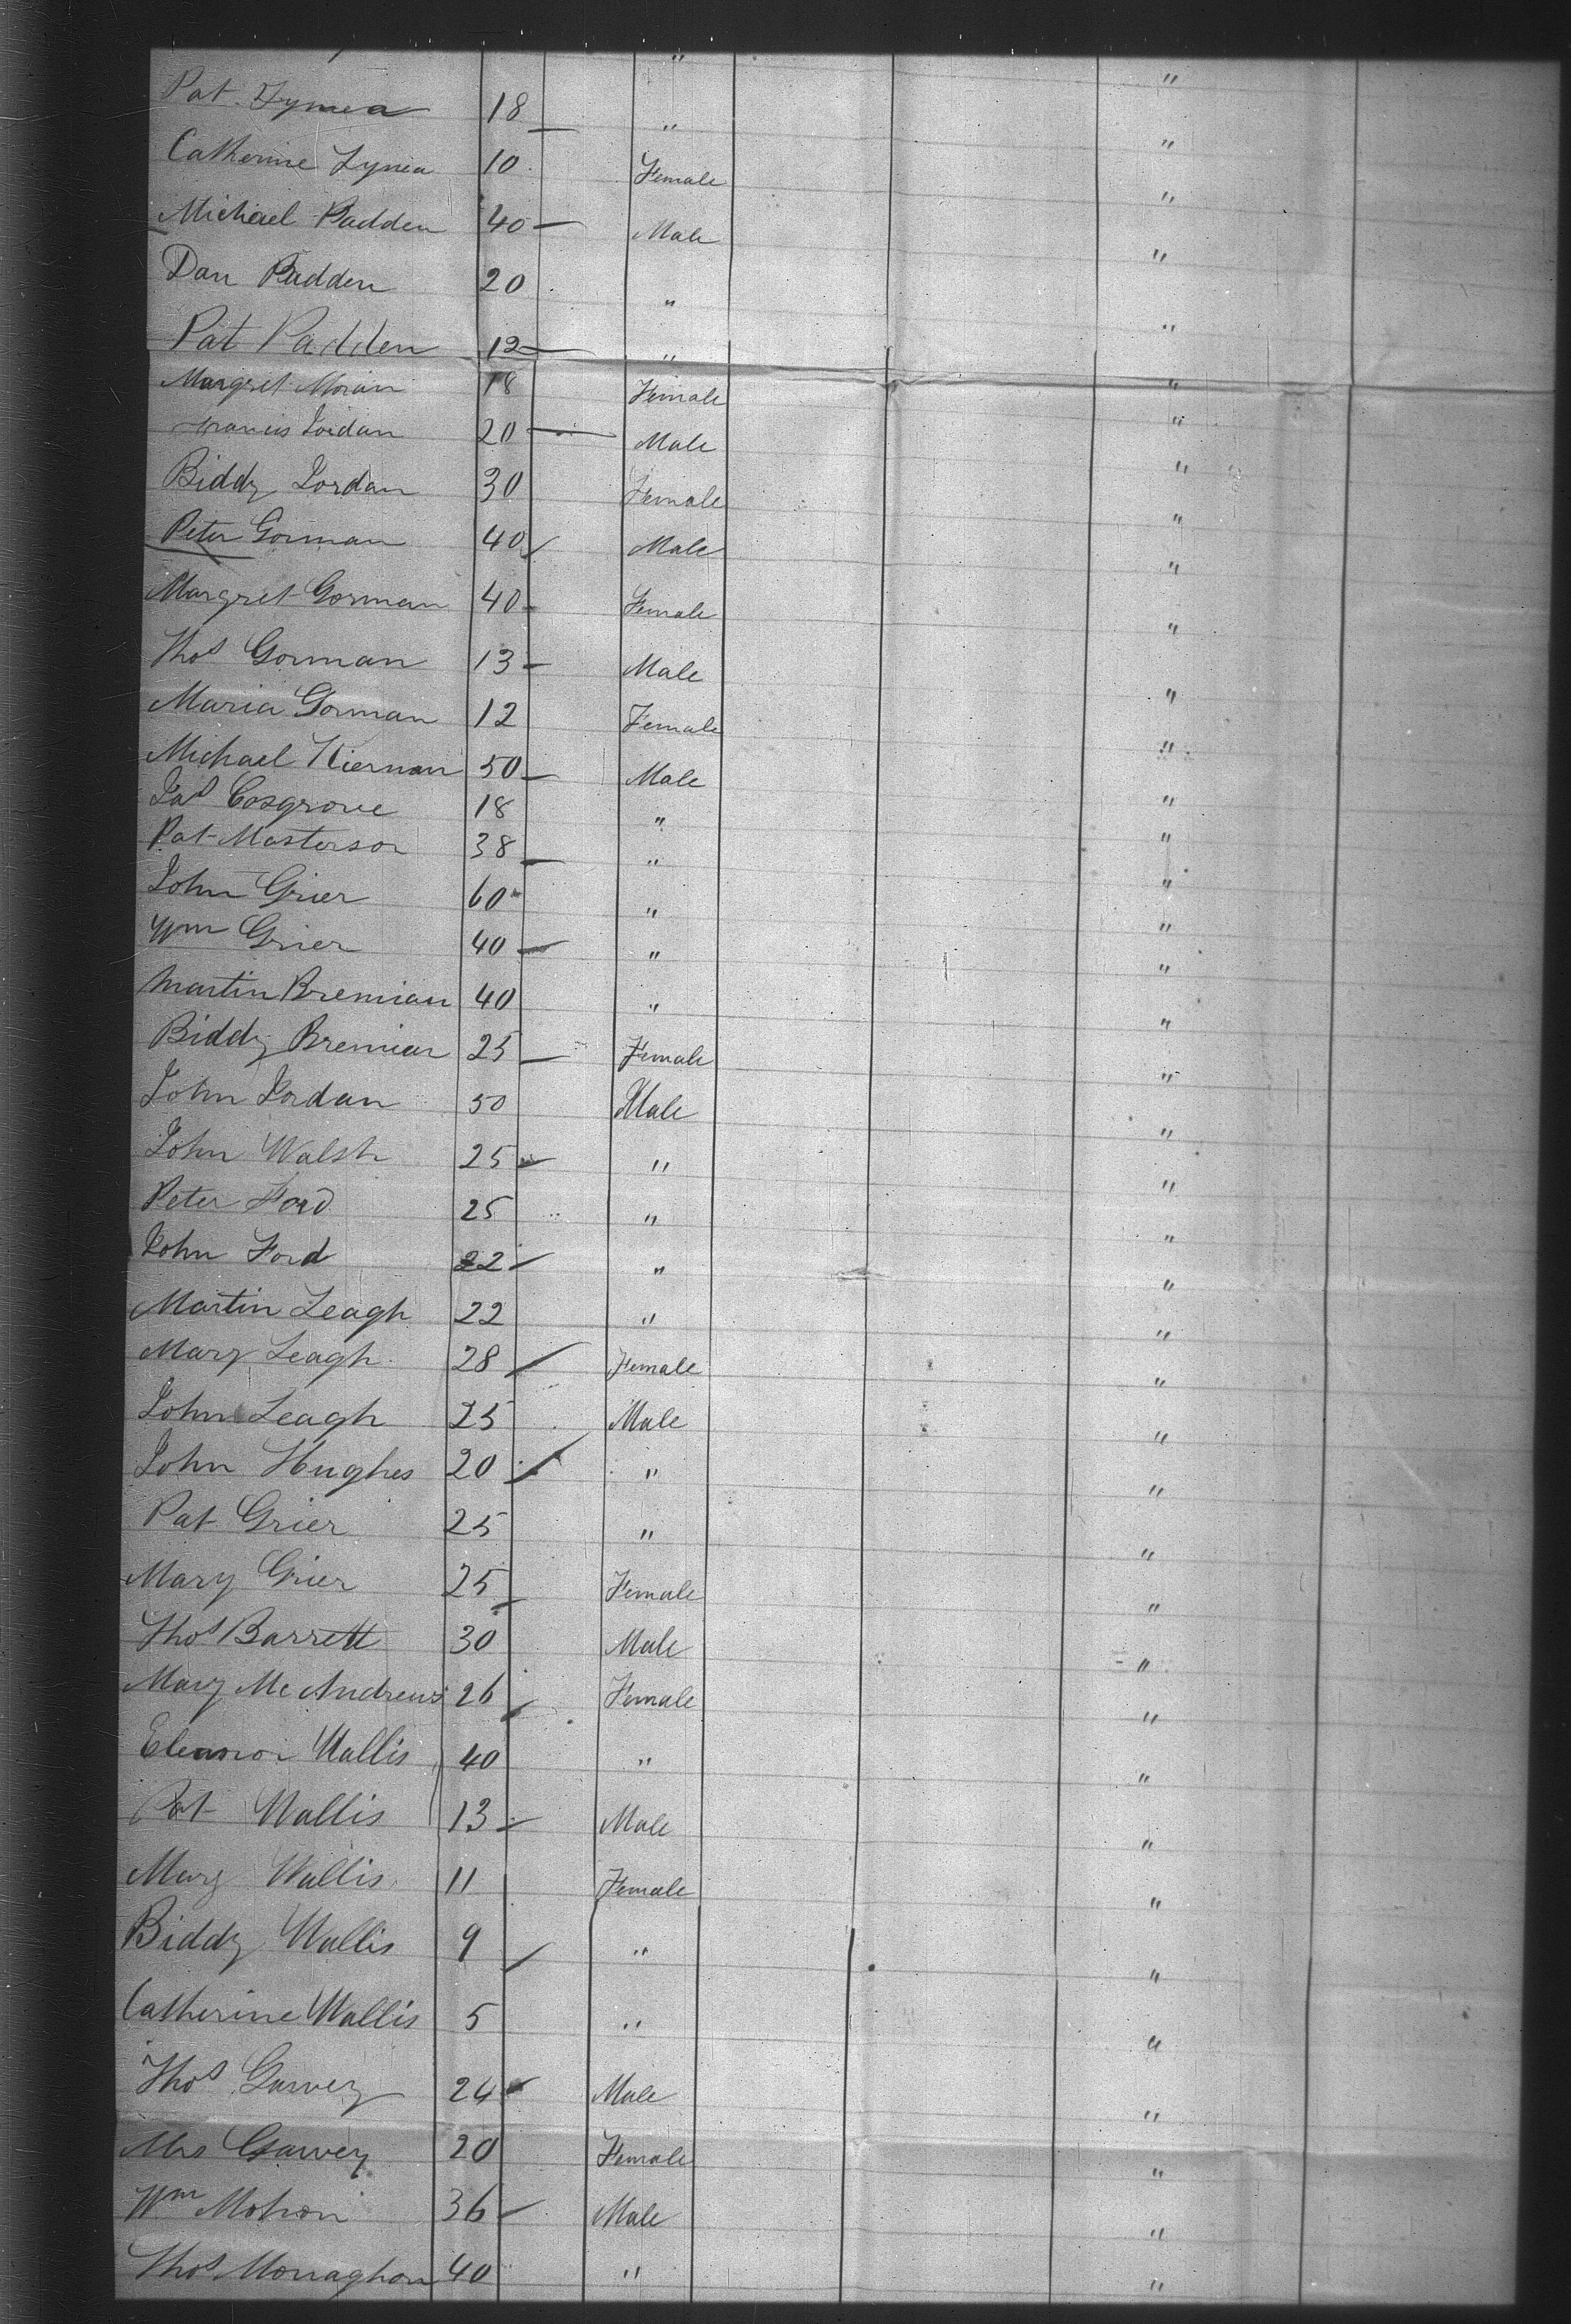 " "
Pat Lynea 18 " "
Catherine Lynea 10 Female "
Michael Padden 40 Male "
Dan Padden 20 " "
Pat Padden 12 " "
Margret Moran 18 Female "
Francis Jordan 20 Male "
Biddy Jordan 30 Female "
Peter Gorman 40 Male "
Margret Gorman 40 Female "
Thos Gorman 13 Male "
Maria Gorman 12 Female "
Michael Kiernan 50 Male "
Jas Cosgrove 18 " "
Pat Masterson 38 " "
John Grier 60 " "
Wm Grier 40 " "
Martin Bremian 40 " "
Biddy Bremian 25 Female "
John Jordan 50 Male "
John Walsh 25 " "
Peter Ford 25 " "
John Ford 22 " "
Martin Leagh 22 " "
Mary Leagh 28 Female "
John Leagh 25 Male "
John Hughes 20 " "
Pat Grier 25 " "
Mary Grier 25 Female "
Thos Barrett 30 Male "
Mary McAndrews 26 Female "
Eleanor Wallis 40 " "
Pat Wallis 13 Male "
Mary Wallis 11 Female "
Biddy Wallis 9 " "
Catherine Wallis 5 " "
Thos Garvey 24 Male "
Mrs Garvey 20 Female "
Wm Mohon 36 Male "
Thos Monaghon 40 " "